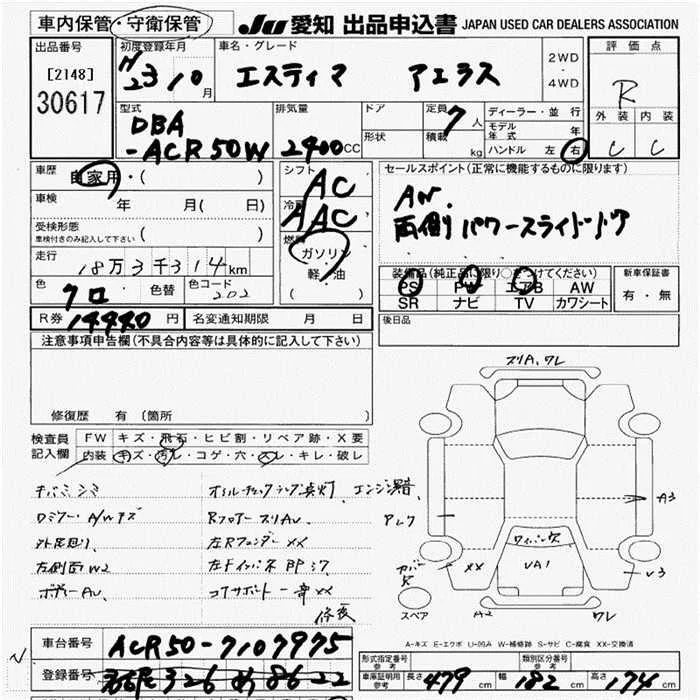 車内保管・守衛保管
JU 愛知 出品申込書 JAPAN USED CAR DEALERS ASSOCIATION
出品番号
[2148]
30617
初度登録年月
H 23 10 月
車名・グレード
エスティマ アエラス
2WD
・
4WD
評価点
R
外装 内装
C C
型式
DBA
-ACR50W
排気量
2400CC
ドア
形状
定員 7人
積載 kg
ディーラー・並行
モデル年式 年
ハンドル 左 右
車歴
自家用・( )
車検 年 月( 日)
受検形態
車検付きのみ記入して下さい ( )
走行
18万3千314km
色
クロ
色替
色コード
202
シフト
AC
冷房
AAC
燃料
ガソリン
軽・油
( )
セールスポイント(正常に機能するものに限ります)
AW.
両側パワースライドドア
装備品(純正品に限り○をつけてください)
PS PW エアB AW
SR ナビ TV カワシート
新車保証書
有・無
R券 14440円
名変通知期限 月 日
後日品
注意事項申告欄(不具合内容等は具体的に記入して下さい)
修復歴 有(箇所
検査員
記入欄
FW キズ・飛石・ヒビ割・リペア跡・X要
内装 キズ・汚レ・コゲ・穴・スレ・キレ・破レ
オイルチェックランプ点灯、エンジン異音
Rフロアー スリAU、
左Rフェンダー XX
外装 左側面 W2
ボデーAU、
コアサポート一部XX
修復
スリA、ワレ
アレク
A3
カバー欠
XX
ワイパー欠
UA1
U3
スペア
A2
ワレ
A-キズ E-エクボ U-凹み W-補修跡 S-サビ C-腐食 XX-交換済
車台番号 ACR50-7107975
登録番号 326 め 8622
形式指定番号
参考
類別区分番号
参考
車庫証明用
参考
長さ 479 幅 182 高さ 174